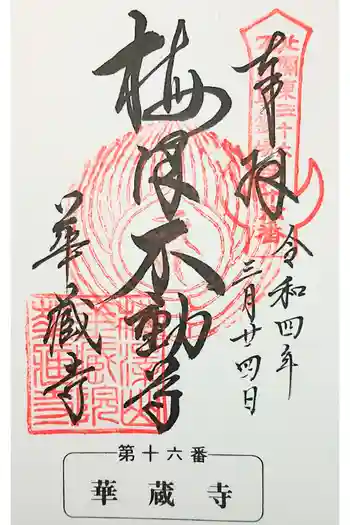 奉拝
令和四年
三月廿四日
梅澤不動尊
華蔵寺
第十六番
華蔵寺